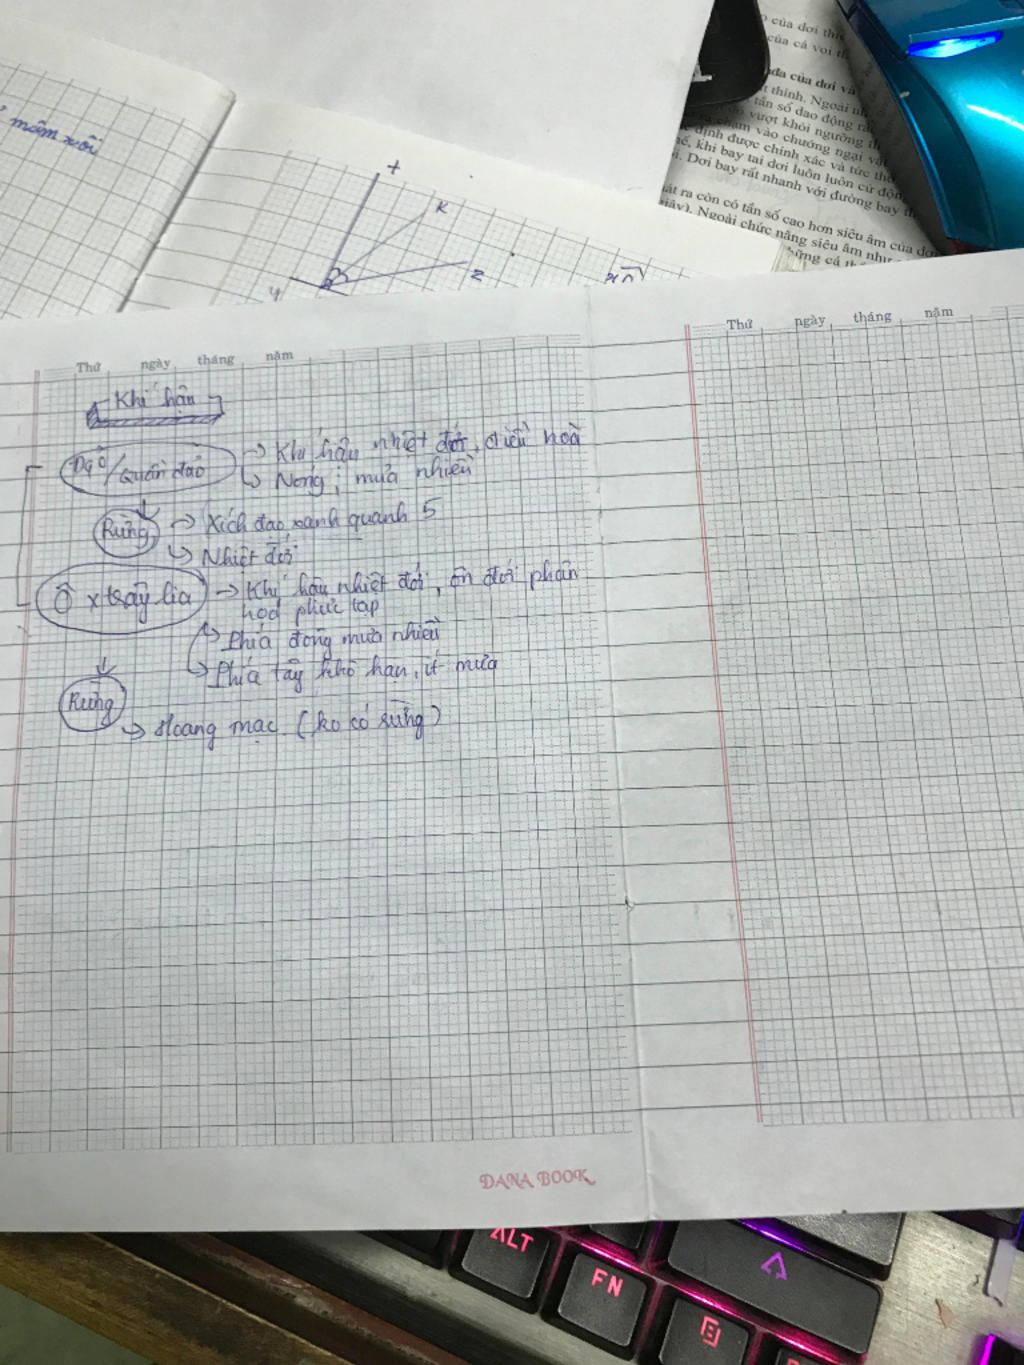 mâm xôi
x
K
z
y
của dơi
của cá voi
của dơi và
thính. Ngoài
tần số dao động
vượt khỏi ngưỡng
chạm vào chướng ngại
định được chính xác và tức
khi bay tai dơi luôn luôn cử động
Dơi bay rất nhanh với đường bay
ra còn có tần số cao hơn siêu âm của
giây). Ngoài chức năng siêu âm như
những cá
Thứ ngày tháng năm
Thứ ngày tháng năm
Khí hậu
/Quần đảo
→ Khí hậu nhiệt đới, điều hoà
→ Nóng, mưa nhiều
Rừng
→ Xích đạo xanh quanh 5
→ Nhiệt đới
Ô xtrây lia
→ Khí hậu nhiệt đới, ôn đới phân
hoá phức tạp
→ Phía đông mưa nhiều
→ Phía tây khô hạn, ít mưa
Rừng
→ Hoang mạc (ko có rừng)
DANA BOOK
ALT
FN